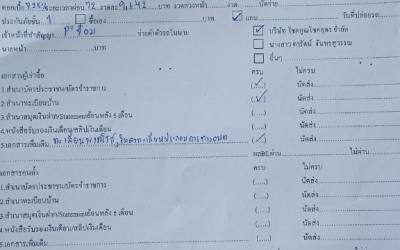 ดอกเบี้ย 8.25% ระยะเวลาผ่อน 72 งวดละ 9,642 บาท งวดล่วงหน้า งวด นัดราย
ประกันภัยชั้น 1 ซื้อเอง บาท ✓ แถม วันที่ปล่อยรถ
เจ้าหน้าที่ทำสัญญา จ่ายค่าตัวรถในนาม ✓ บริษัท โชคคูณโชคกุตร จำกัด
นายหน้า บาท นางสาว ศรรัตน์ จันทรสุวรรณ
อื่นๆ
เอกสารผู้เช่าซื้อ ครบ ไม่ครบ
1.สำเนาบัตรประชาชน/บัตรข้าราชการ (✓) นัดส่ง
2.สำเนาทะเบียนบ้าน (✓) นัดส่ง
3.สำเนาสมุดเงินฝาก/Statementย้อนหลัง 6 เดือน (....) นัดส่ง
4.หนังสือรับรองเงินเดือน/สลิปเงินเดือน (....) นัดส่ง
5.เอกสารเพิ่มเติม ทะเบียนพาณิชย์, (✓) นัดส่ง
ผลBLผ่าน ไม่ผ่าน
เอกสารคนค้ำ ครบ ไม่ครบ
1.สำเนาบัตรประชาชน/บัตรข้าราชการ (....) นัดส่ง
2.สำเนาทะเบียนบ้าน (....) นัดส่ง
3.สำเนาสมุดเงินฝาก/Statementย้อนหลัง 6 เดือน (....) นัดส่ง
4.หนังสือรับรองเงินเดือน/สลิปเงินเดือน (....) นัดส่ง
5.เอกสารเพิ่มเติม (....) นัดส่ง